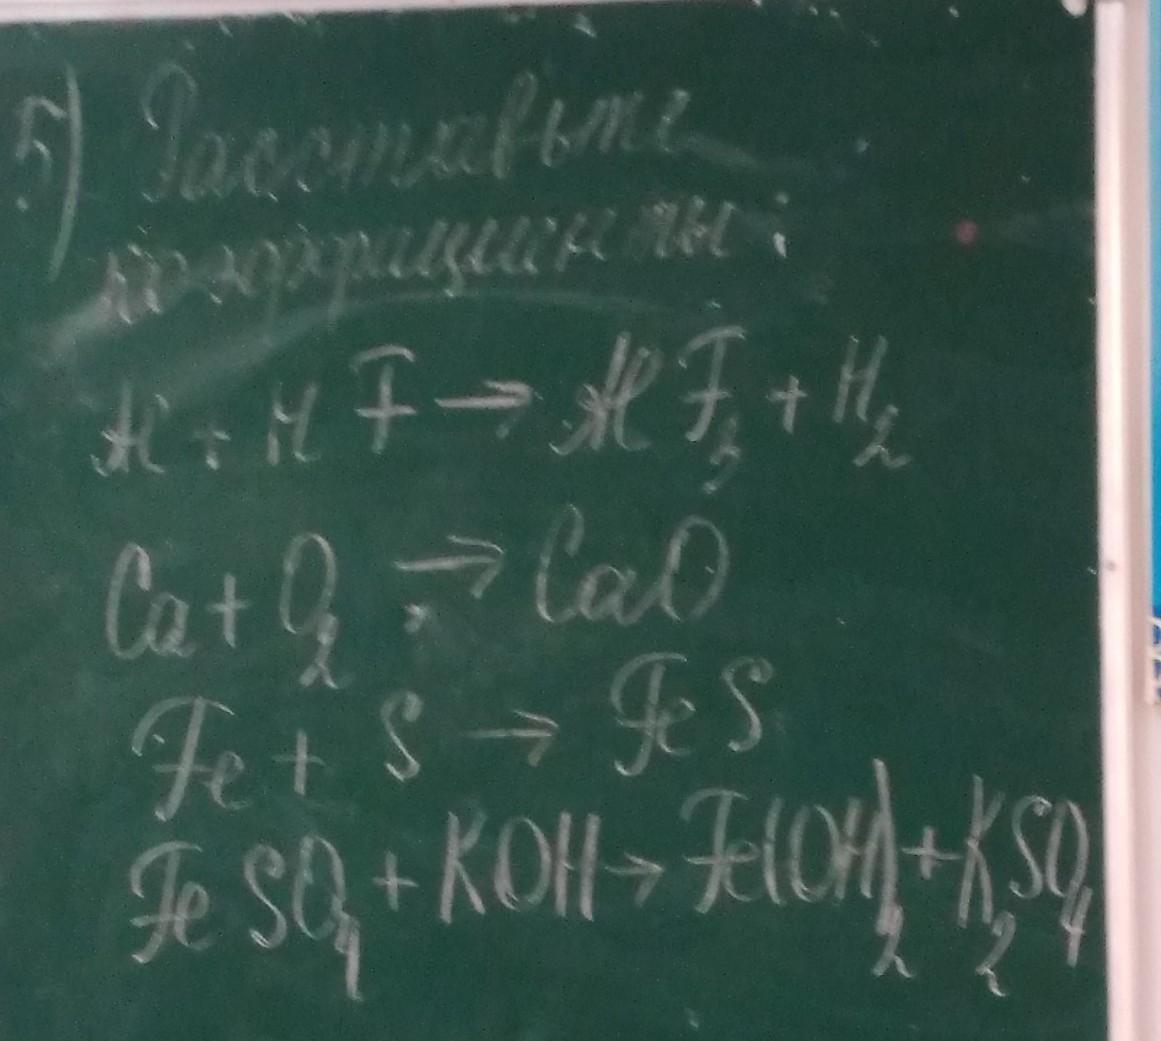 5) Расставьте
коэффициенты:
Al + HF → AlF₃ + H₂
Ca + O₂ → CaO
Fe + S → FeS
FeSO₄ + KOH → Fe(OH)₂ + K₂SO₄